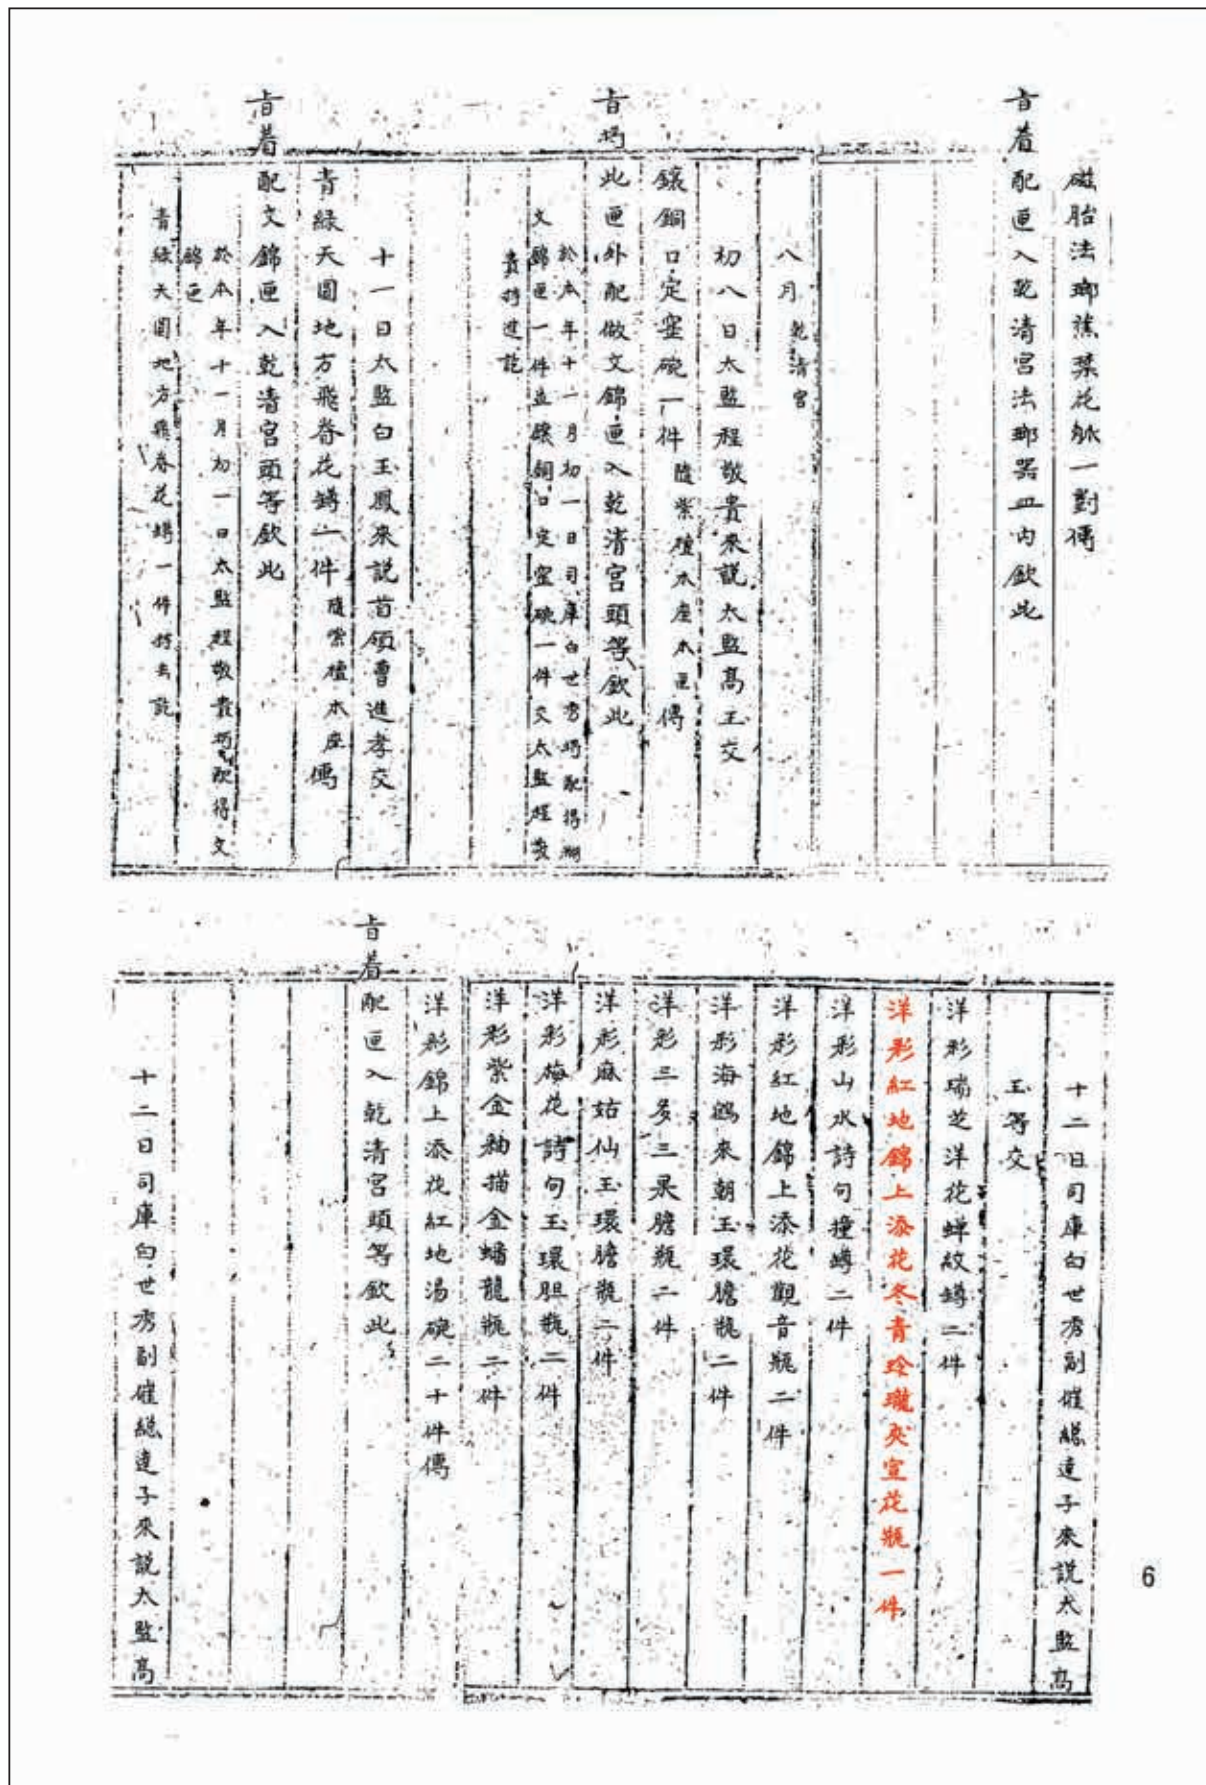 磁胎法瑯蕉葉花觚一對傳
旨着配匣入乾清宮法瑯器皿內欽此
八月 乾清宮
初八日太監程敬貴來說太監高玉交
鑲銅口定窰碗一件 隨紫檀木座木匣 傳
旨將此匣外配做文錦匣入乾清宮頭等欽此
於本年十一月初一日司庫白世秀將配得糊
文錦匣一件並鑲銅口定窰碗一件交太監程敬
貴持進訖
十一日太監白玉鳳來說首領曹進孝交
青綠天圓地方飛脊花罇一件 隨紫檀木座 傳
旨着配文錦匣入乾清宮頭等欽此
於本年十一月初一日太監程敬貴將配得文
錦匣
青綠天圓地方飛脊花罇一件持去訖
十二日司庫白世秀副催總達子來說太監高
玉等交
洋彩瑞芝洋花蟬紋罇二件
洋彩紅地錦上添花冬青玲瓏夾宣花瓶一件
洋彩山水詩句撞罇二件
洋彩紅地錦上添花觀音瓶二件
洋彩海鶴來朝玉環膽瓶二件
洋彩三多三果膽瓶二件
洋彩麻姑仙玉環膽瓶二件
洋彩梅花詩句玉環胆瓶二件
洋彩紫金釉描金蟠龍瓶二件
洋彩錦上添花紅地湯碗二十件傳
旨着配匣入乾清宮頭等欽此
十二日司庫白世秀副催總達子來說太監高
6